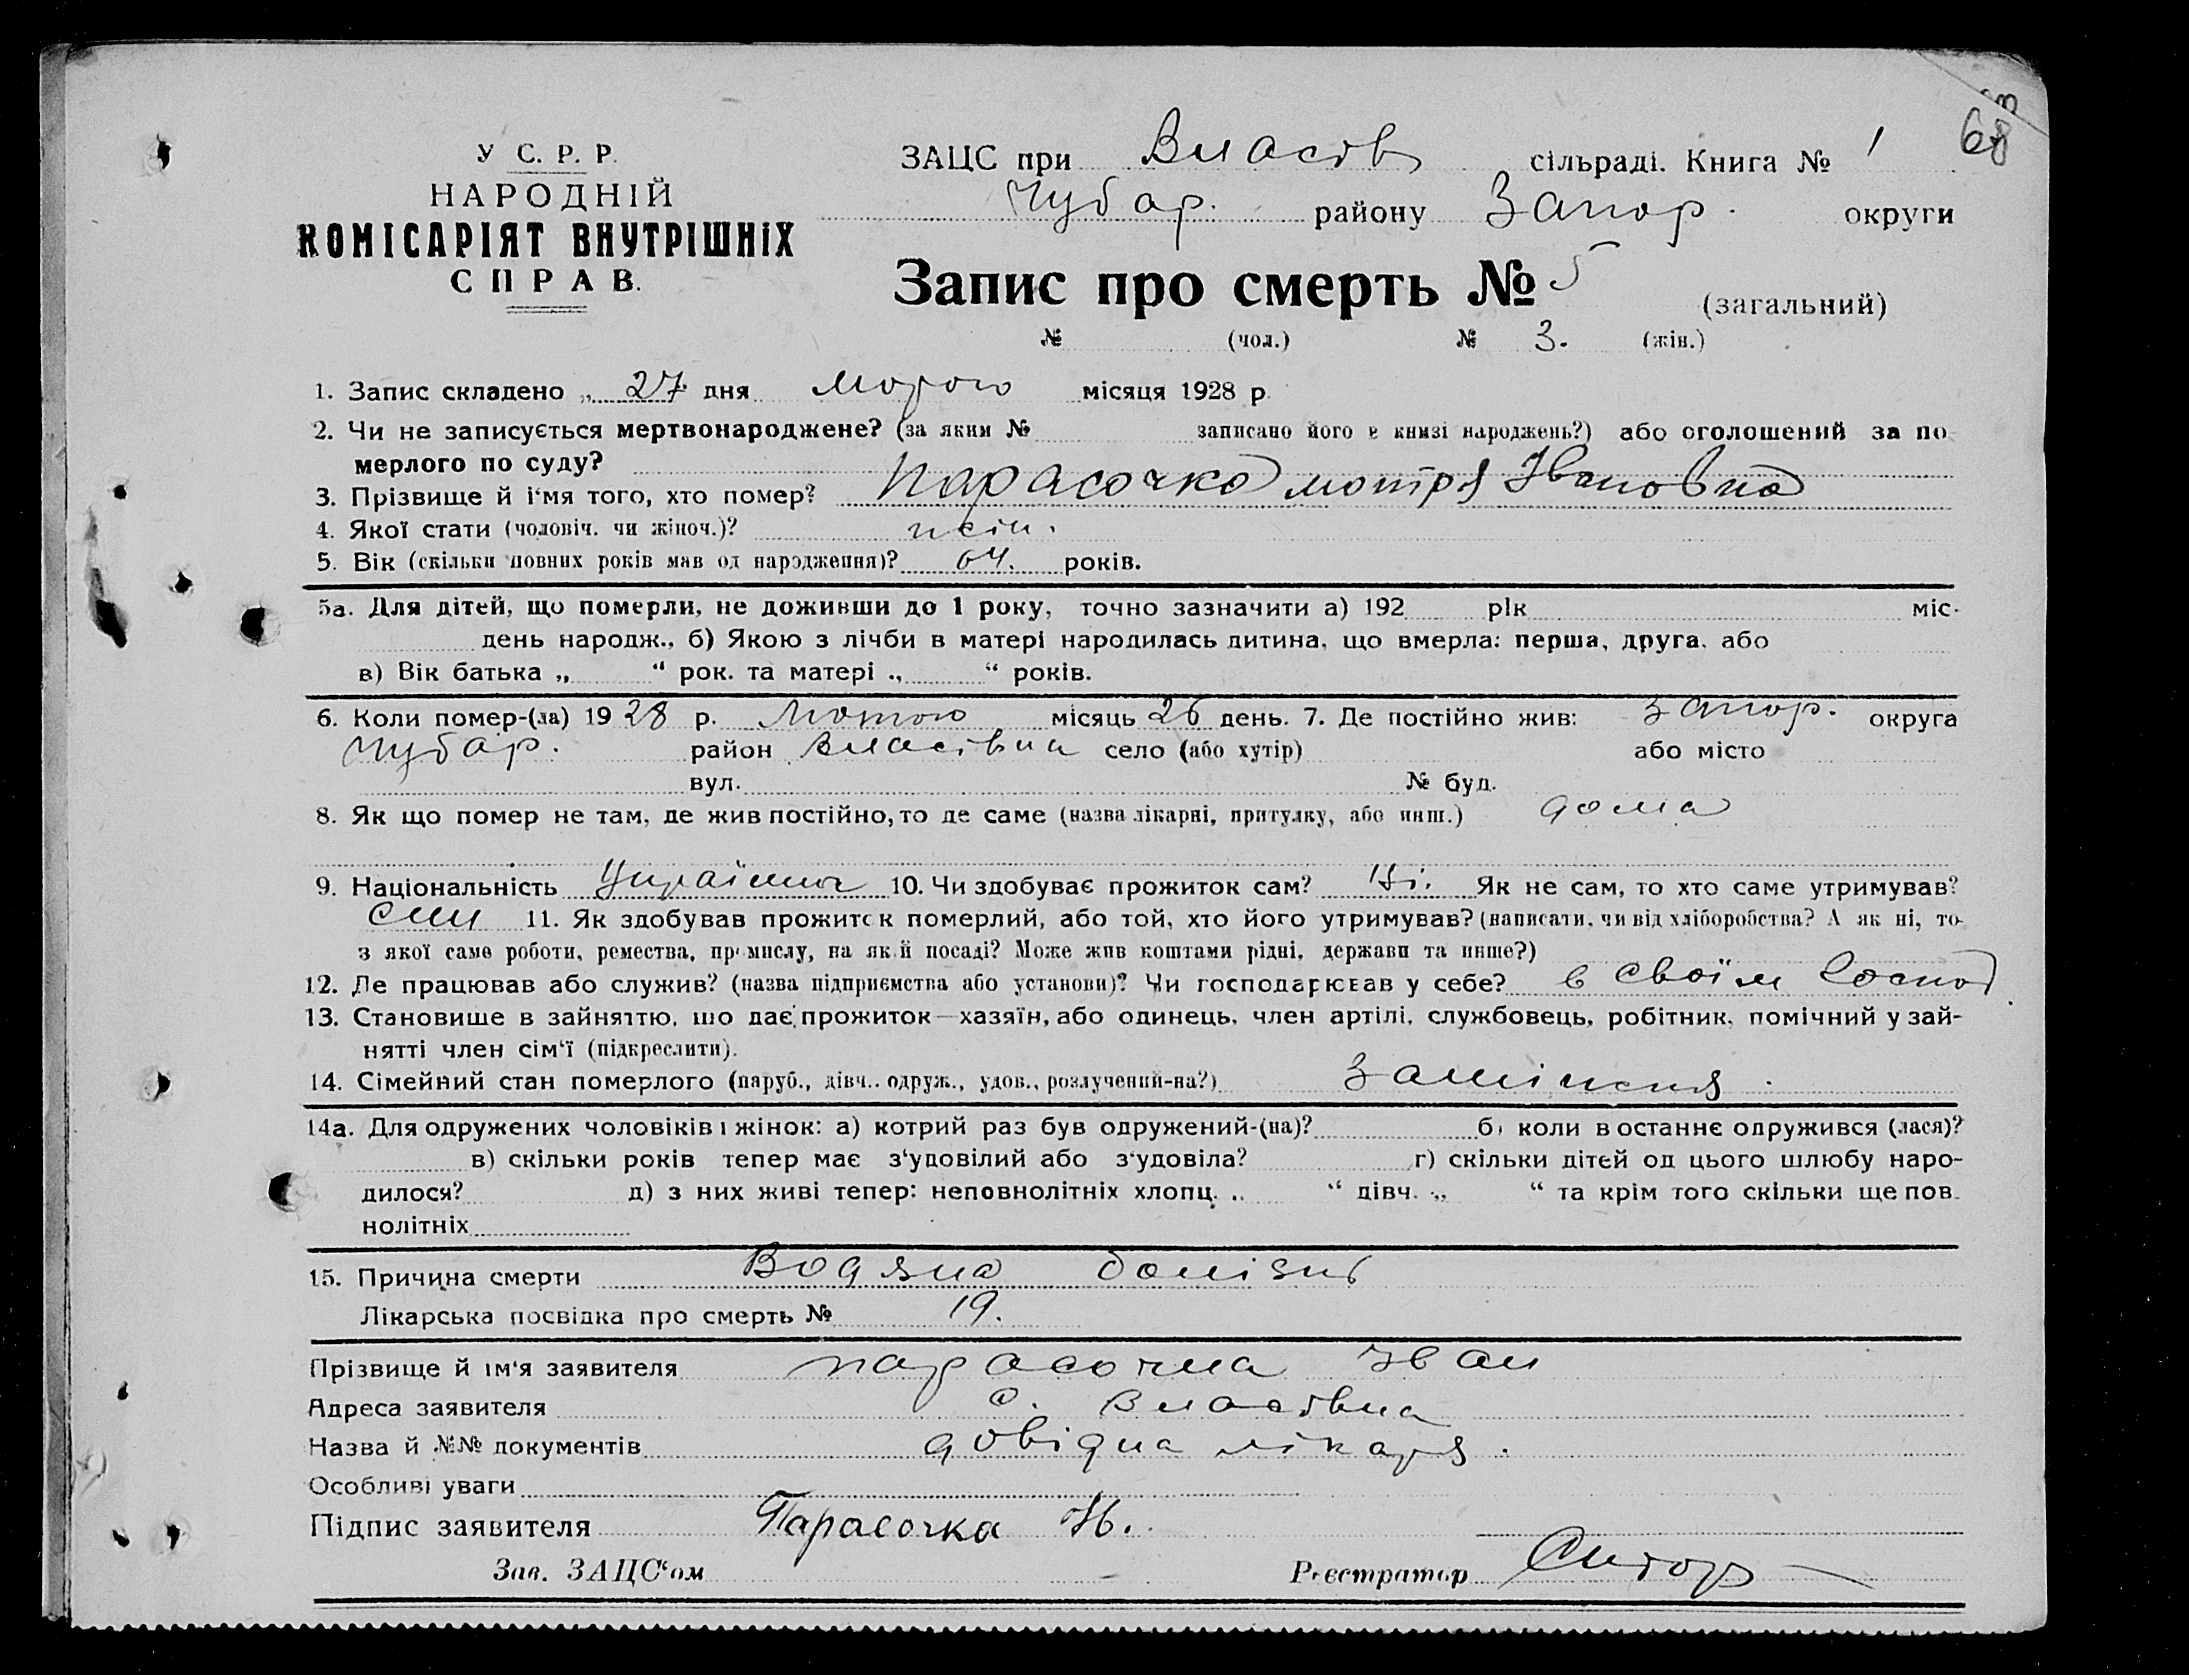 68
У С. Р. Р.
НАРОДНІЙ
КОМІСАРІЯТ ВНУТРІШНІХ
СПРАВ.
ЗАЦС при Власів сільраді. Книга № 1
Чубар. району Запор. округи
Запис про смерть № 5 (загальний)
№ (чол.) № 3. (жін.)
1. Запис складено „ 27 дня місяця 1928 р.
2. Чи не записується мертвонароджене? (за яким № записано його в книзі народжень?) або оголошений за по
мерлого по суду?
3. Прізвище й і'мя того, хто помер? Парасочка Мотря Івановна
4. Якої стати (чоловіч. чи жіноч.)? жін.
5. Вік (скільки повних років мав од народження)? 64. років.
5а. Для дітей, що померли, не доживши до 1 року, точно зазначити а) 192 рік міс.
день народж., б) Якою з лічби в матері народилась дитина, що вмерла: перша, друга, або
в) Вік батька „ “ рок. та матері „ “ років.
6. Коли помер-(ла) 19 28 р. Лютого місяць 26 день. 7. Де постійно жив: Запор. округа
Чубар. район Власівка село (або хутір) або місто
вул. № буд.
8. Як що помер не там, де жив постійно, то де саме (назва лікарні, притулку, або инш.) дома
9. Національність Українка 10. Чи здобуває прожиток сам? Ні. Як не сам, то хто саме утримував?
син 11. Як здобував прожиток померлий, або той, хто його утримував? (написати, чи від хліборобства? А як ні, то
з якої саме роботи, ремества, промислу, на якій посаді? Може жив коштами рідні, держави та инше?)
12. Де працював або служив? (назва підприємства або установи)? Чи господарював у себе? в своїм господ
13. Становище в зайняттю, що дає прожиток—хазяїн, або одинець, член артілі, службовець, робітник, помічний у зай-
нятті член сім'ї (підкреслити).
14. Сімейний стан померлого (паруб., дівч., одруж., удов., розлучений-на?) Заміжня.
14а. Для одружених чоловіків і жінок: а) котрий раз був одружений-(на)? б) коли востаннє одружився (лася)?
в) скільки років тепер має з'удовілий або з'удовіла? г) скільки дітей од цього шлюбу наро-
дилося? д) з них живі тепер: неповнолітніх хлопц. „ “ дівч. „ “ та крім того скільки ще пов.
нолітніх
15. Причина смерти Водяна болізнь
Лікарська посвідка про смерть № 19.
Прізвище й ім'я заявителя Парасочка Іван
Адреса заявителя с. Власівка
Назва й №№ документів довідка лікаря.
Особливі уваги
Підпис заявителя Парасочка И.
Зав. ЗАЦС'ом Реєстратор